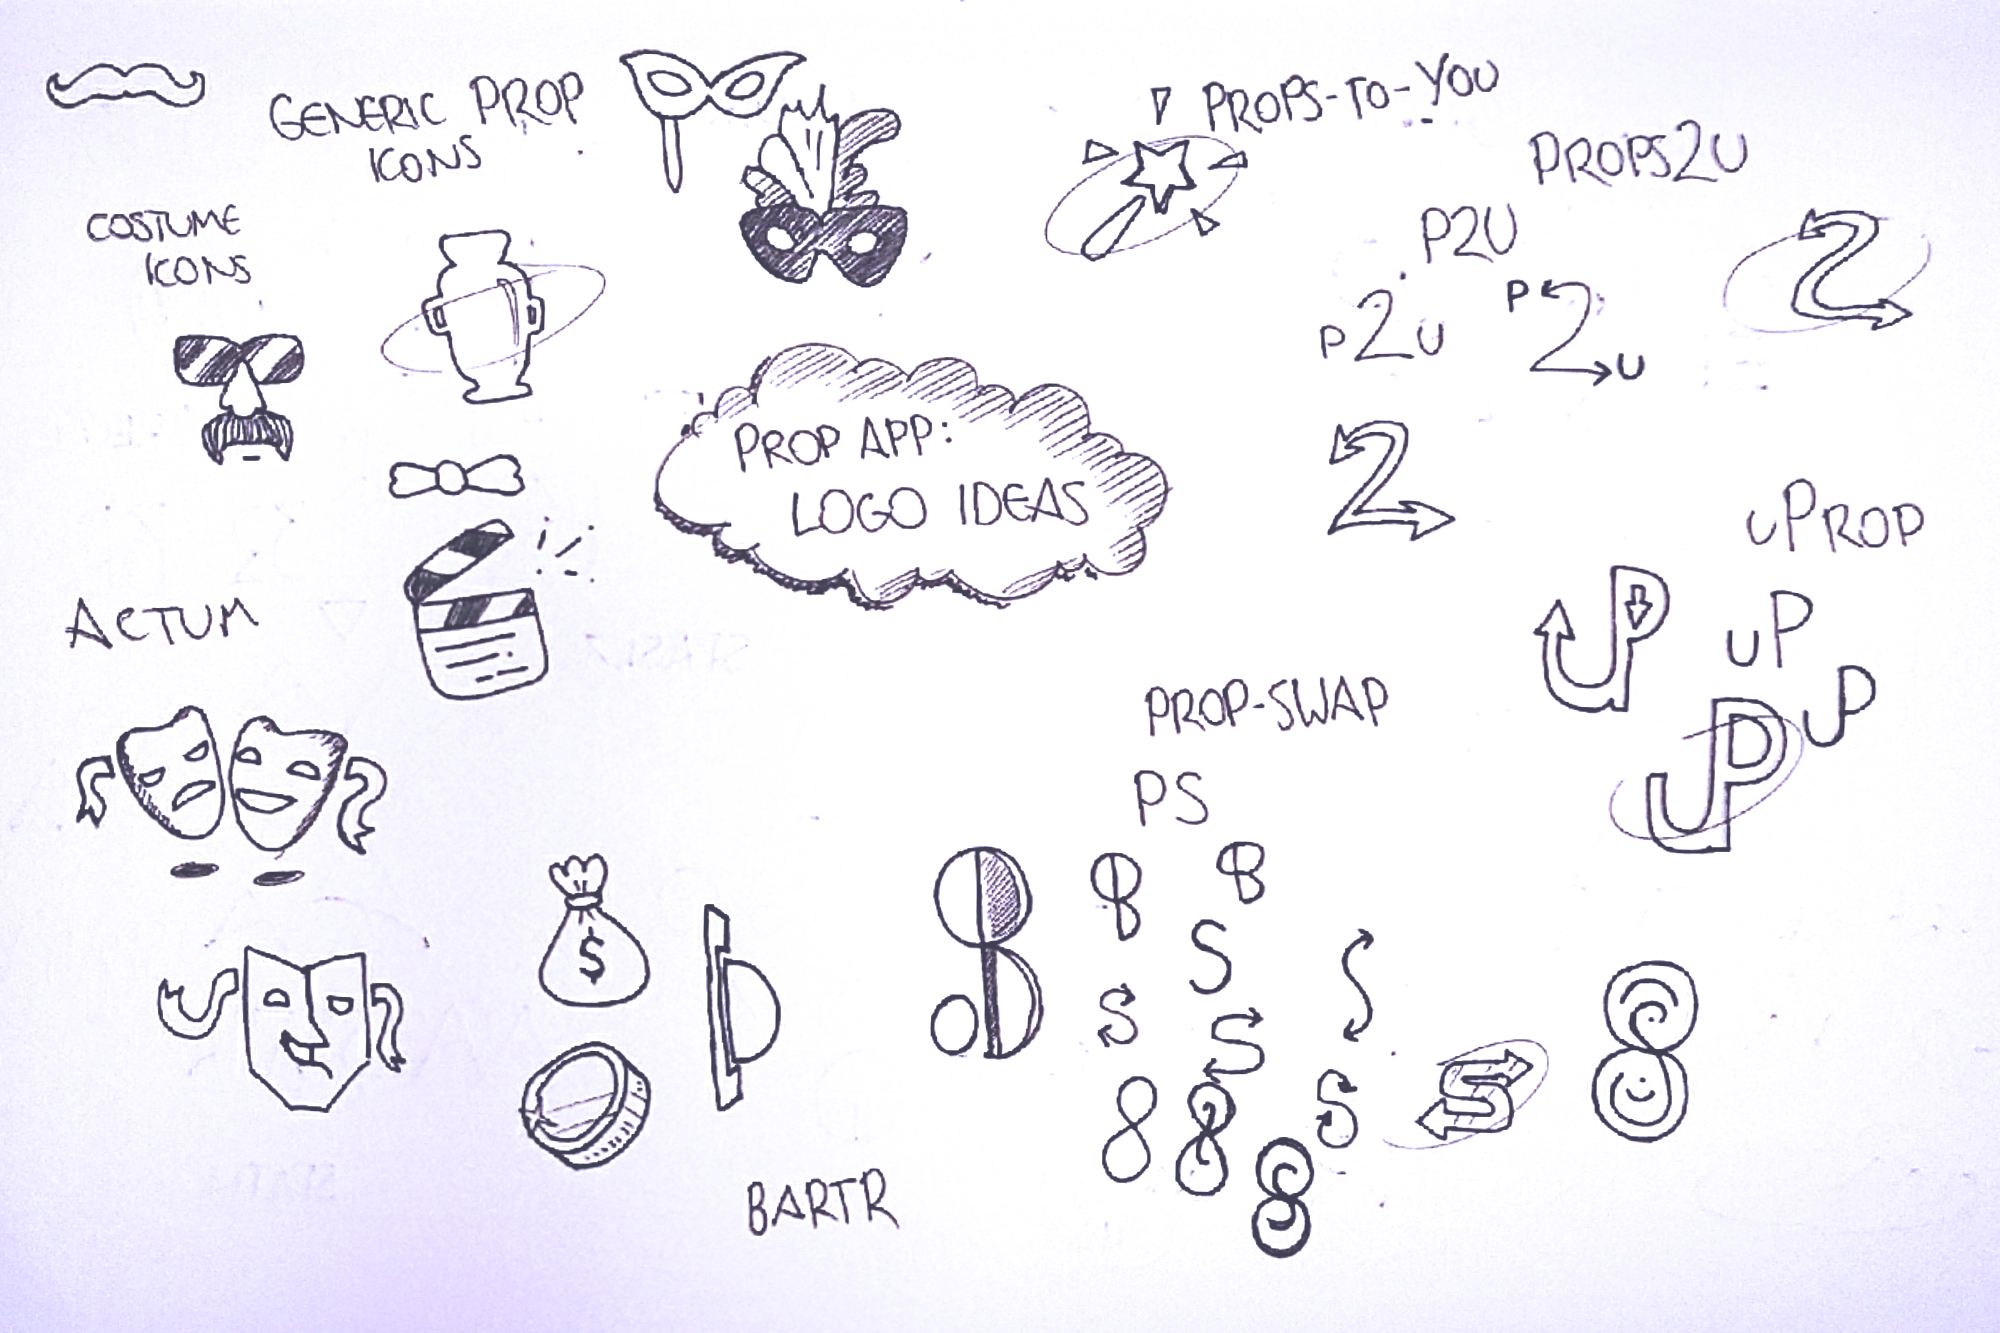 GENERIC PROP
ICONS
COSTUME
ICONS
PROPS-TO-YOU
PROPS2U
P2U
P2U
P
2
U
2
2
PROP APP:
LOGO IDEAS
uPROP
uP
uP
uP
uP
ACTUM
PROP-SWAP
PS
S
S
S
S
S
$
BARTR